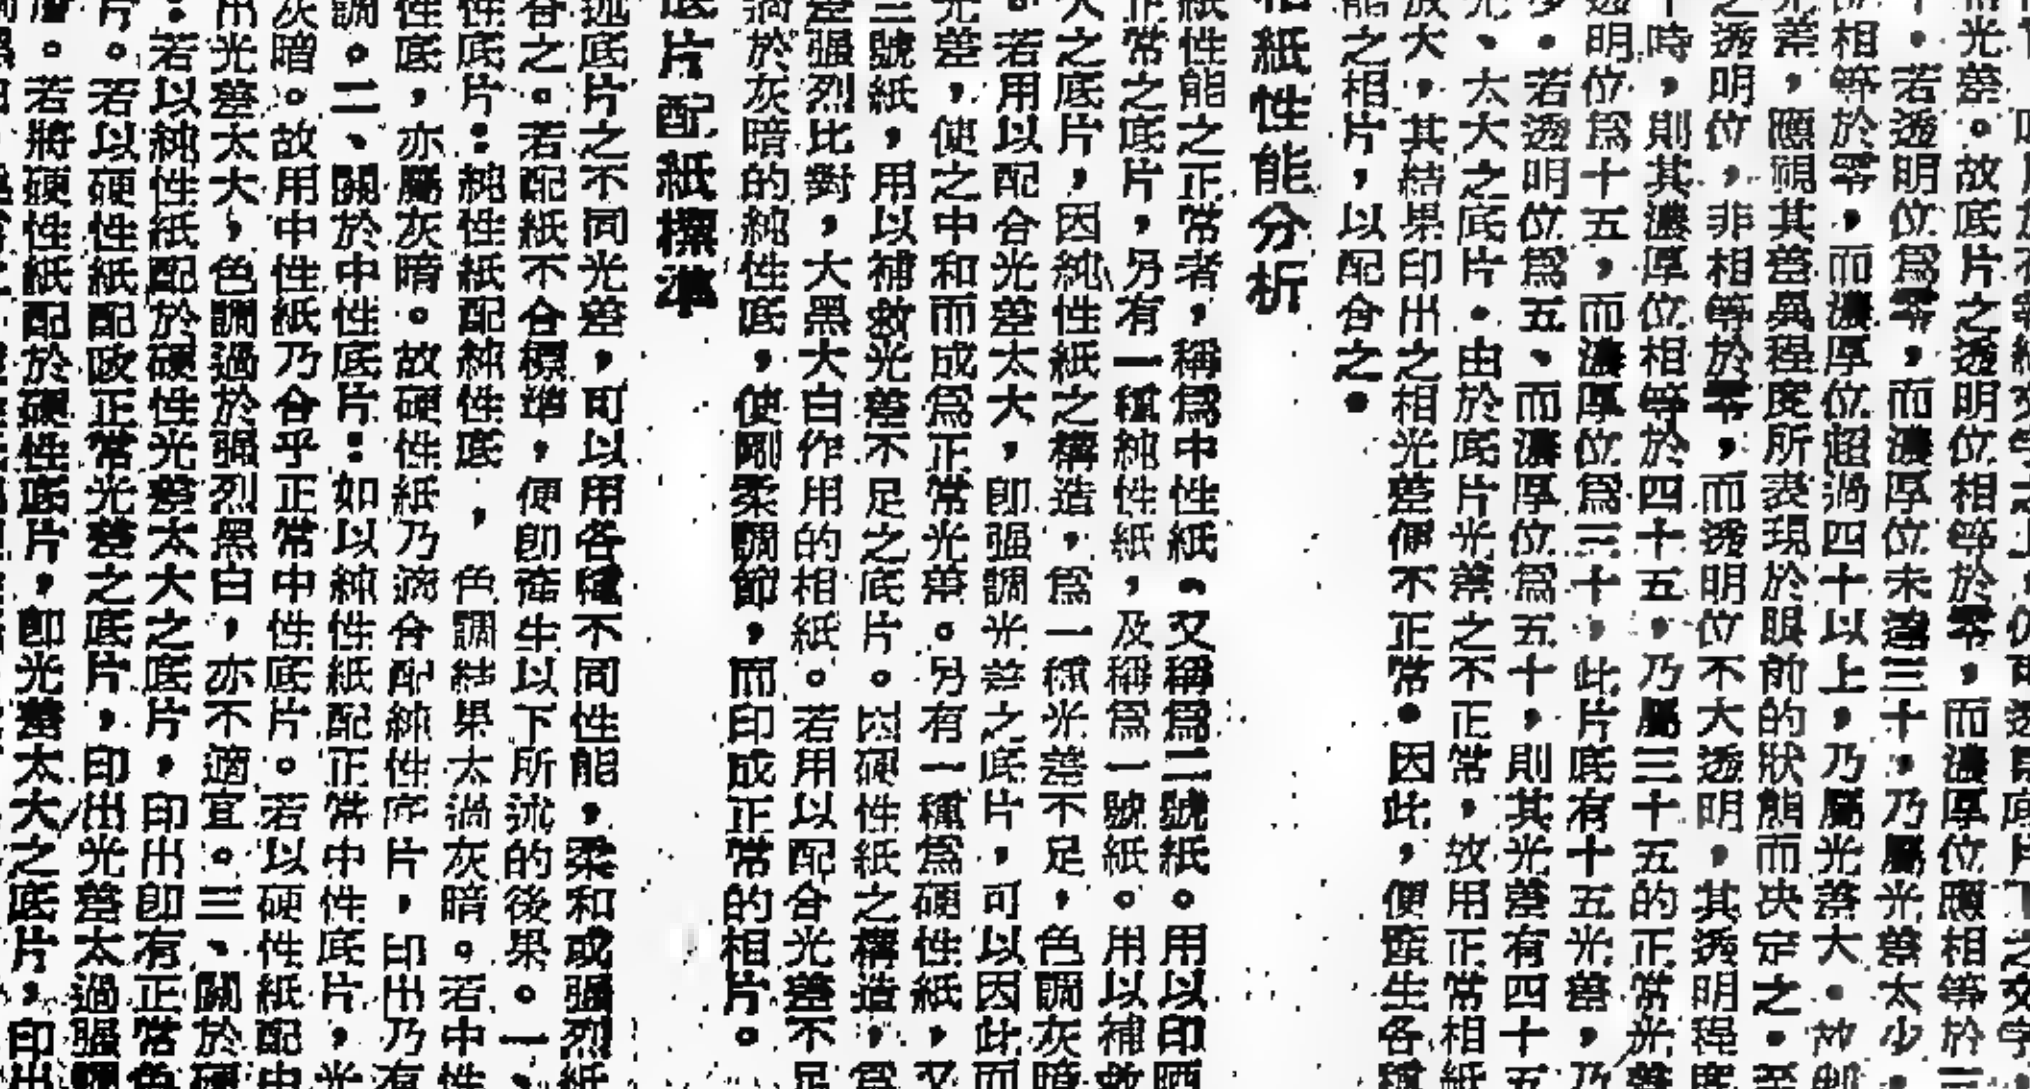 光差。故底片之透明位相等於零，而濃厚位應相等於
。若透明位爲零，而濃厚位未達三十，乃屬光差太少。
相等於零，而濃厚位超過四十以上，乃屬光差大。故
光差，應視其差異程度所表現於眼前的狀態而決定之。至
之透明位，非相等於零，而透明位不大透明，其透明程度
時，則其濃厚位相等於四十五，乃屬三十五的正常光差
透明位爲十五，而濃厚位爲三十，此片底有十五光差，乃
少。若透明位爲五、而濃厚位爲五十，則其光差有四十五
光、太大之底片。由於底片光差之不正常，故用正常相紙
放大，其結果印出之相光差便不正常。因此，便產生各種
能之相片，以配合之。
相紙性能分析
紙性能之正常者，稱爲中性紙。又稱爲二號紙。用以印晒
正常之底片，另有一種純性紙，及稱爲一號紙。用以補救
大之底片，因純性紙之構造，爲一種光差不足，色調灰暗
。若用以配合光差太大，卽强調光差之底片，可以因此而
光差，使之中和而成爲正常光差。另有一種爲硬性紙，又
三號紙，用以補救光差不足之底片。因硬性紙之構造，爲
差强烈比對，大黑大白作用的相紙。若用以配合光差不足
於灰暗的純性底，使剛柔調節，而印成正常的相片。
底片配紙標準
述底片之不同光差，可以用各種不同性能，柔和或强烈紙
合之。若配紙不合標準，便卽產生以下所述的後果。一、
性底片：純性紙配純性底，色調結果太過灰暗。若中性
性底，亦屬灰暗。故硬性紙乃適合配純性底片，印出乃有
調。二、關於中性底片：如以純性紙配正常中性底片，光
灰暗。故用中性紙乃合乎正常中性底片。若以硬性紙配中
出光差太大，色調過於强烈黑白，亦不適宜。三、關於硬
：若以純性紙配於硬性光差太大之底片，印出卽有正常色
片。若以硬性紙配正常光差之底片，印出光差太過强調
。若將硬性紙配於硬性底片，卽光差太大之底片，印出